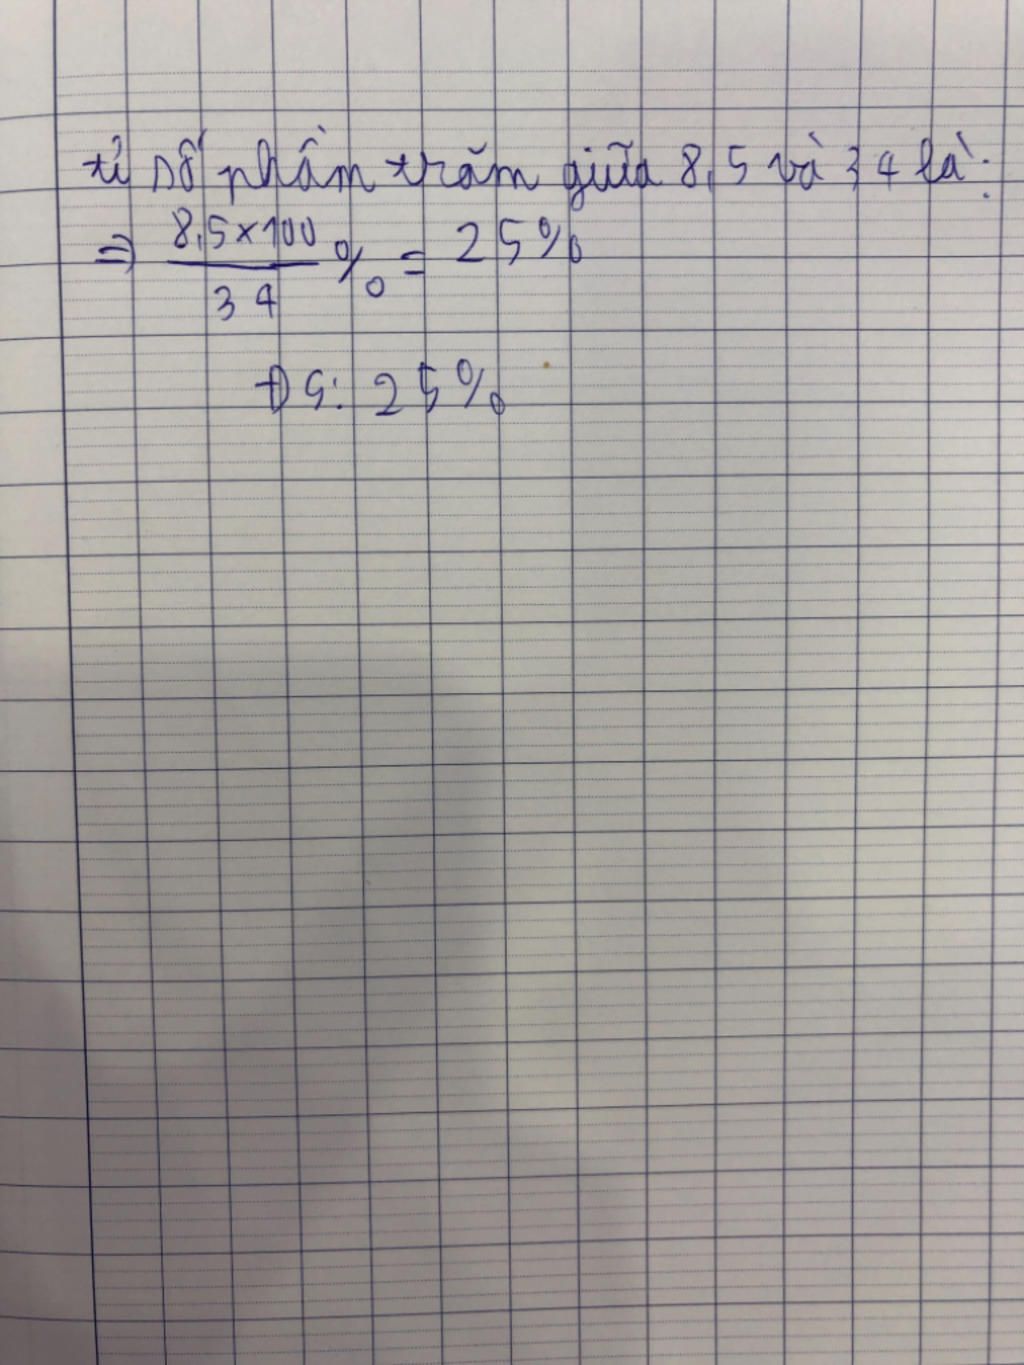 tỉ số phần trăm giữa 8,5 và 34 là:
=> 8,5×100/34 % = 25%
ĐS: 25%